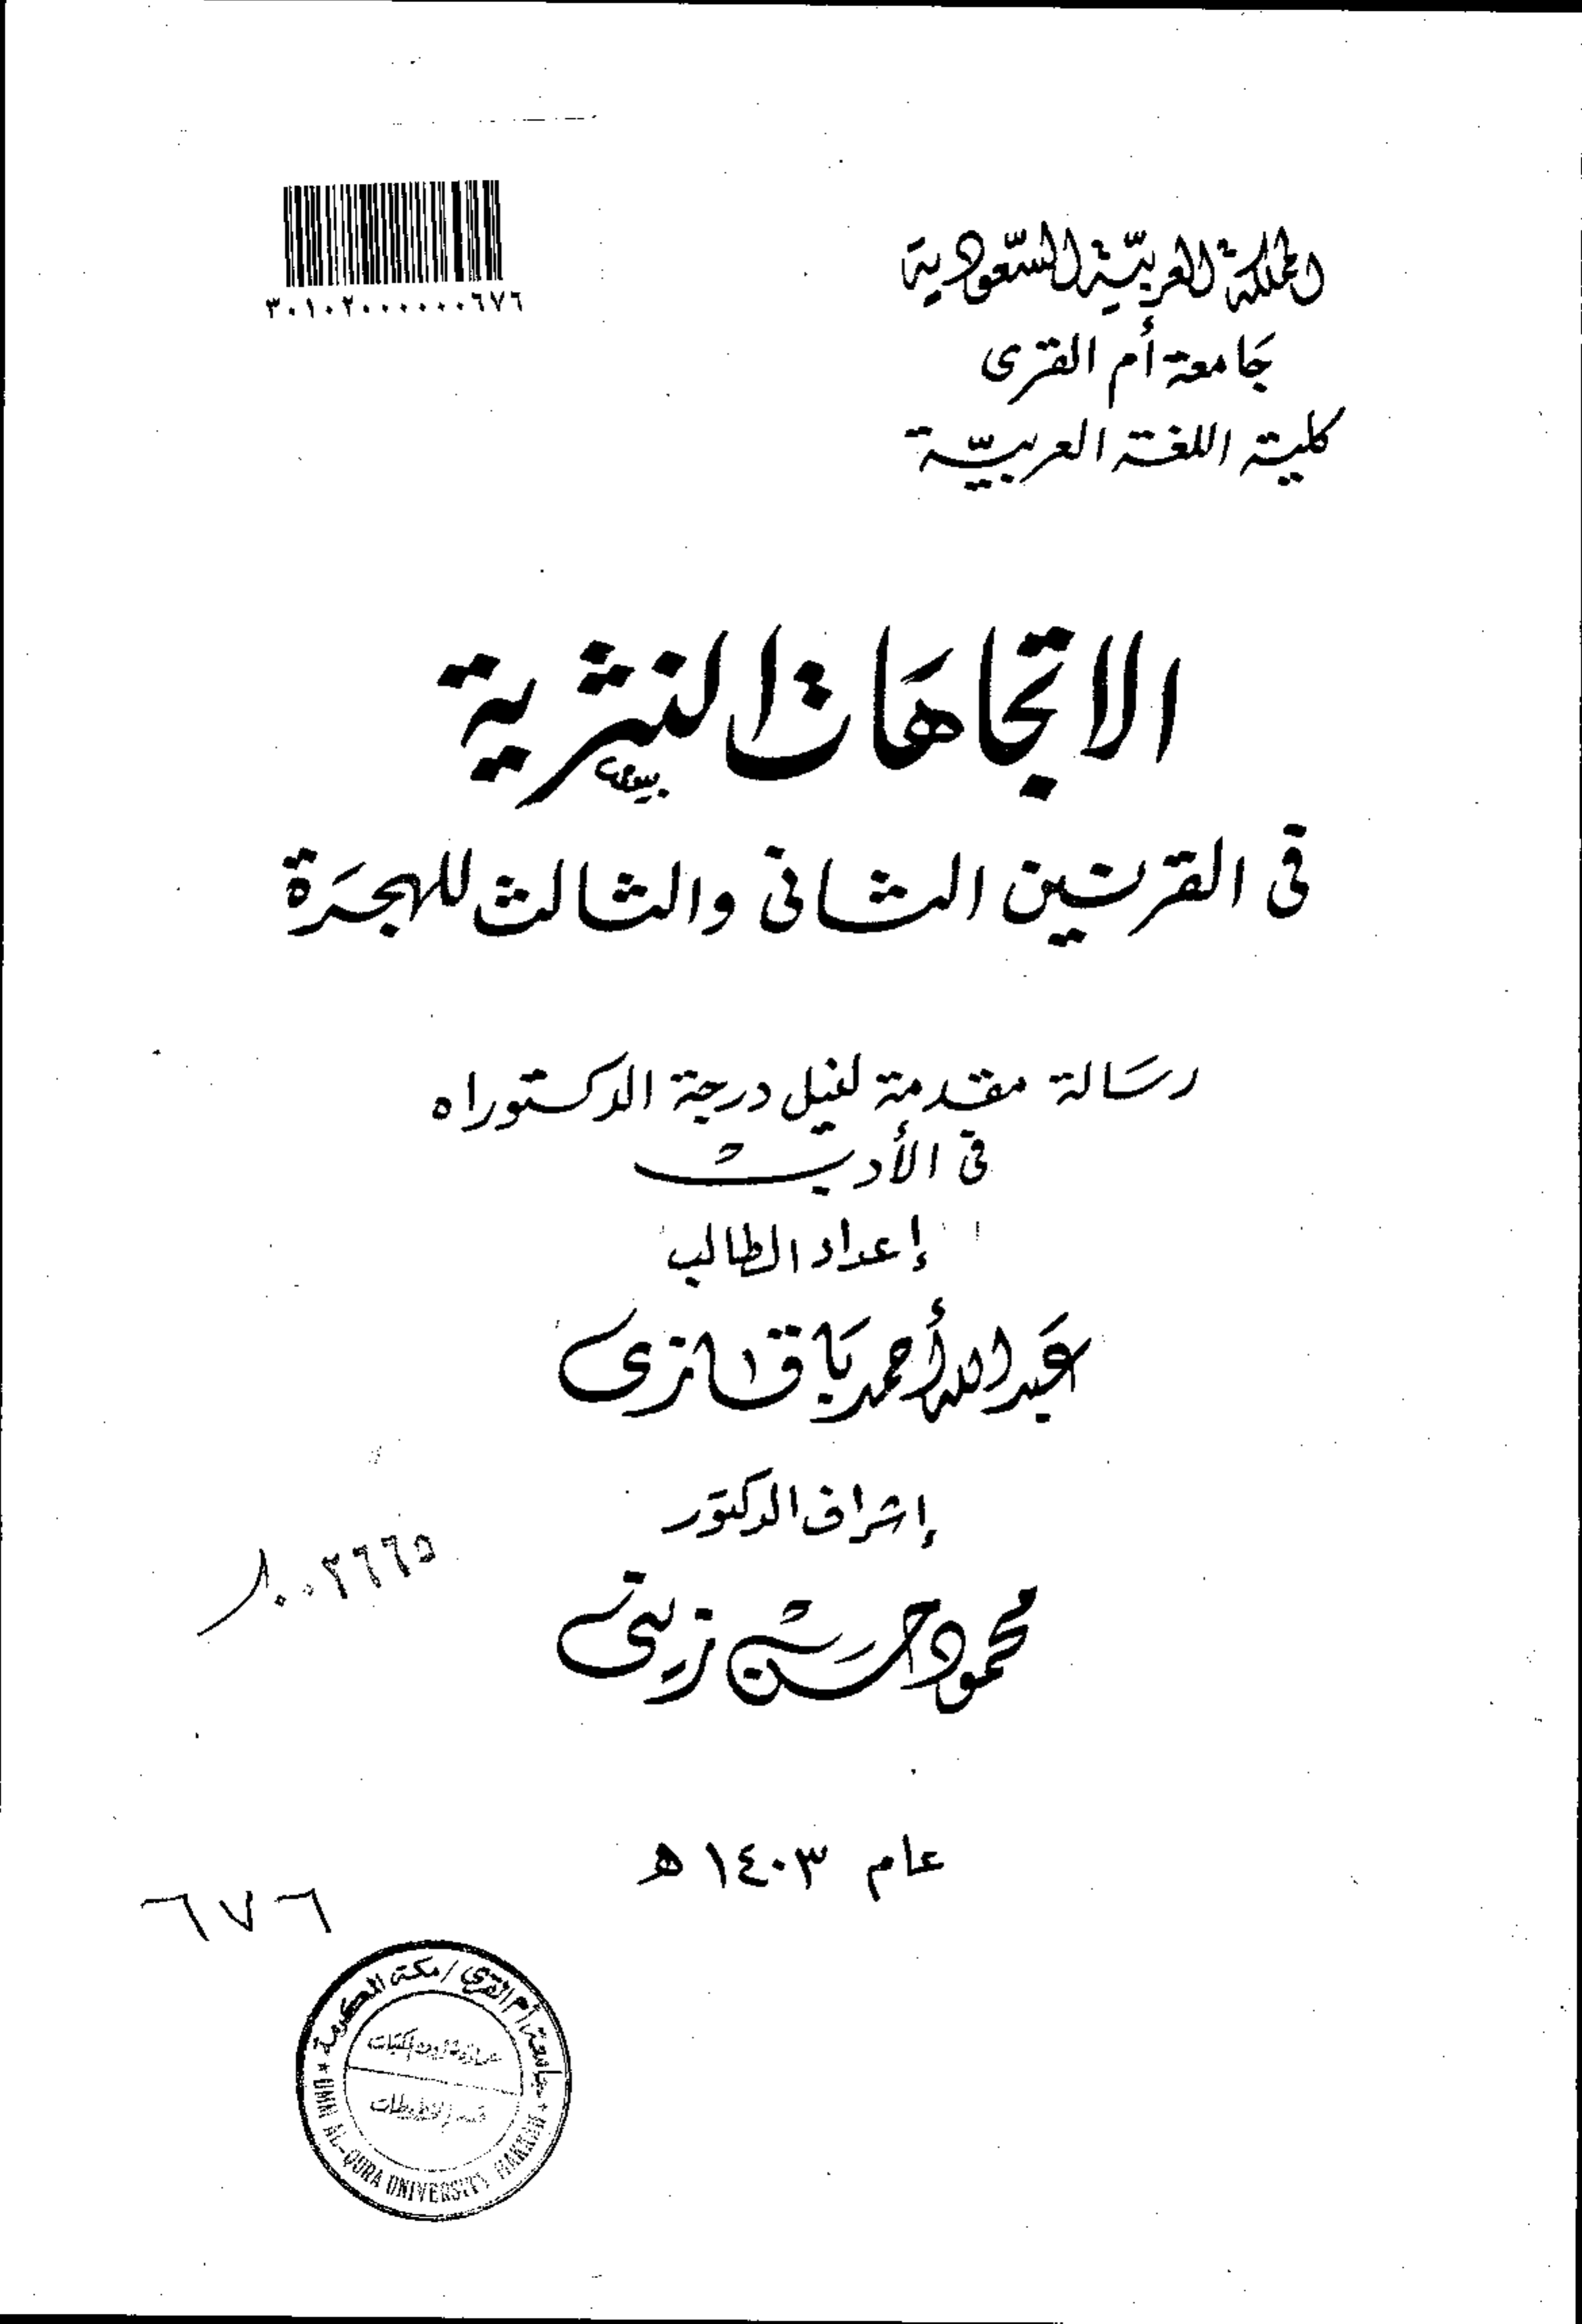 المملكة العربيّة السّعودية
جَامعة أم القرى
كلية اللغة العربيّة
٣٠١٠٢٠٠٠٠٠٠٦٧٦
الاتجاهَات النثرية
فى القرنين الثانى والثالث للهجرَة
رسَالة مقدمة لنيل درجة الدكتوراه
فى الأدب
إعداد الطالب
عَبد الله أحمد بَاقازى
إشراف الدكتور
محمود حسَن زينى
٠٠٢٦٦٥
عام ١٤٠٣ ھ
٦٧٦
جامعة أم القرى / مكة المكرمة
قسم المخطوطات
UMM AL-QURA UNIVERSITY MAKKAH